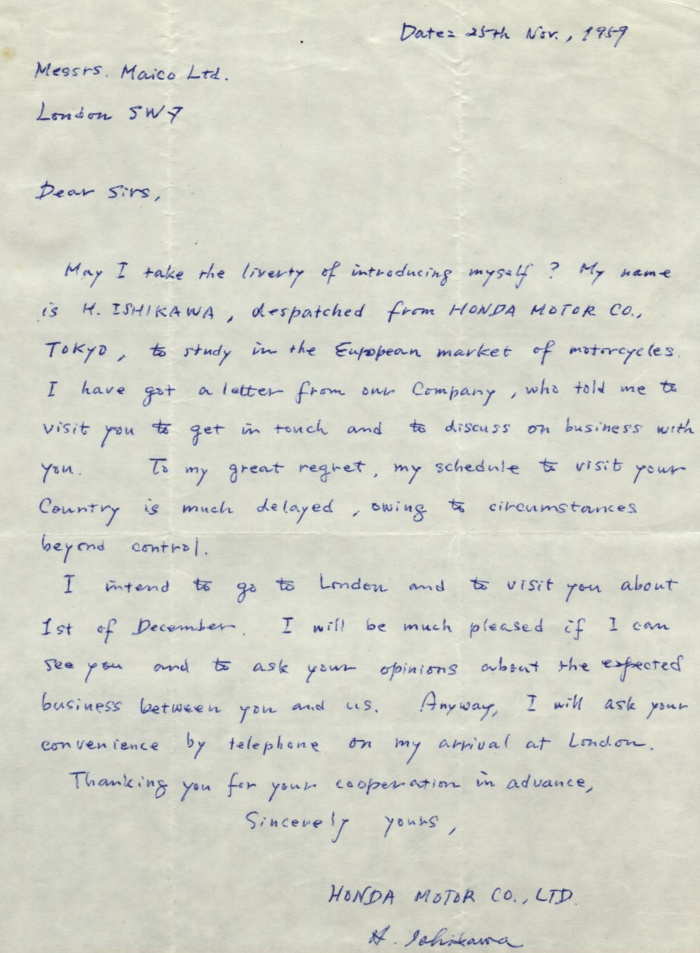 Date: 25th Nov., 1959
Messrs. Maico Ltd.
London SW7
Dear Sirs,
May I take the liverty of introducing myself? My name
is H. ISHIKAWA, despatched from HONDA MOTOR CO.,
TOKYO, to study in the European market of motorcycles.
I have got a letter from our Company, who told me to
visit you to get in touch and to discuss on business with
you. To my great regret, my schedule to visit your
Country is much delayed, owing to circumstances
beyond control.
I intend to go to London and to visit you about
1st of December. I will be much pleased if I can
see you and to ask your opinions about the expected
business between you and us. Anyway, I will ask your
convenience by telephone on my arrival at London.
Thanking you for your cooperation in advance,
Sincerely yours,
HONDA MOTOR CO., LTD.
H. Ishikawa